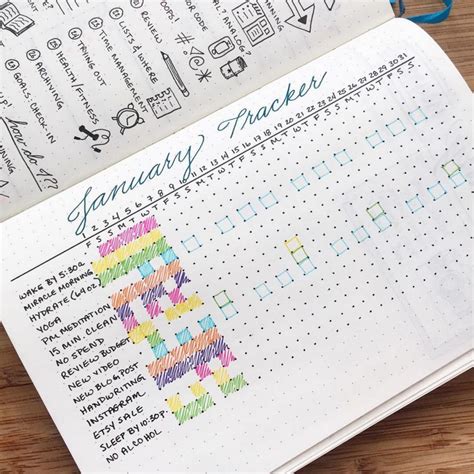 GOALS: CHECK-IN
ARCHIVING
HEALTH/FITNESS
TRYING OUT
TIME MANAGEMENT
LISTS & WHERE
REVIEW
CODE
ANALOG?
how do I??
January Tracker
1 2 3 4 5 6 7 8 9 10 11 12 13 14 15 16 17 18 19 20 21 22 23 24 25 26 27 28 29 30 31
F S S M T W T F S S M T W T F S S M T W T F S S M T W T F S S
WAKE BY 5:30a
MIRACLE MORNING
HYDRATE (64 oz)
YOGA
PM MEDITATION
15 MIN. CLEAN
NO SPEND
REVIEW BUDGET
NEW VIDEO
NEW BLOG POST
HANDWRITING
INSTAGRAM
ETSY SALE
SLEEP BY 10:30p.
NO ALCOHOL